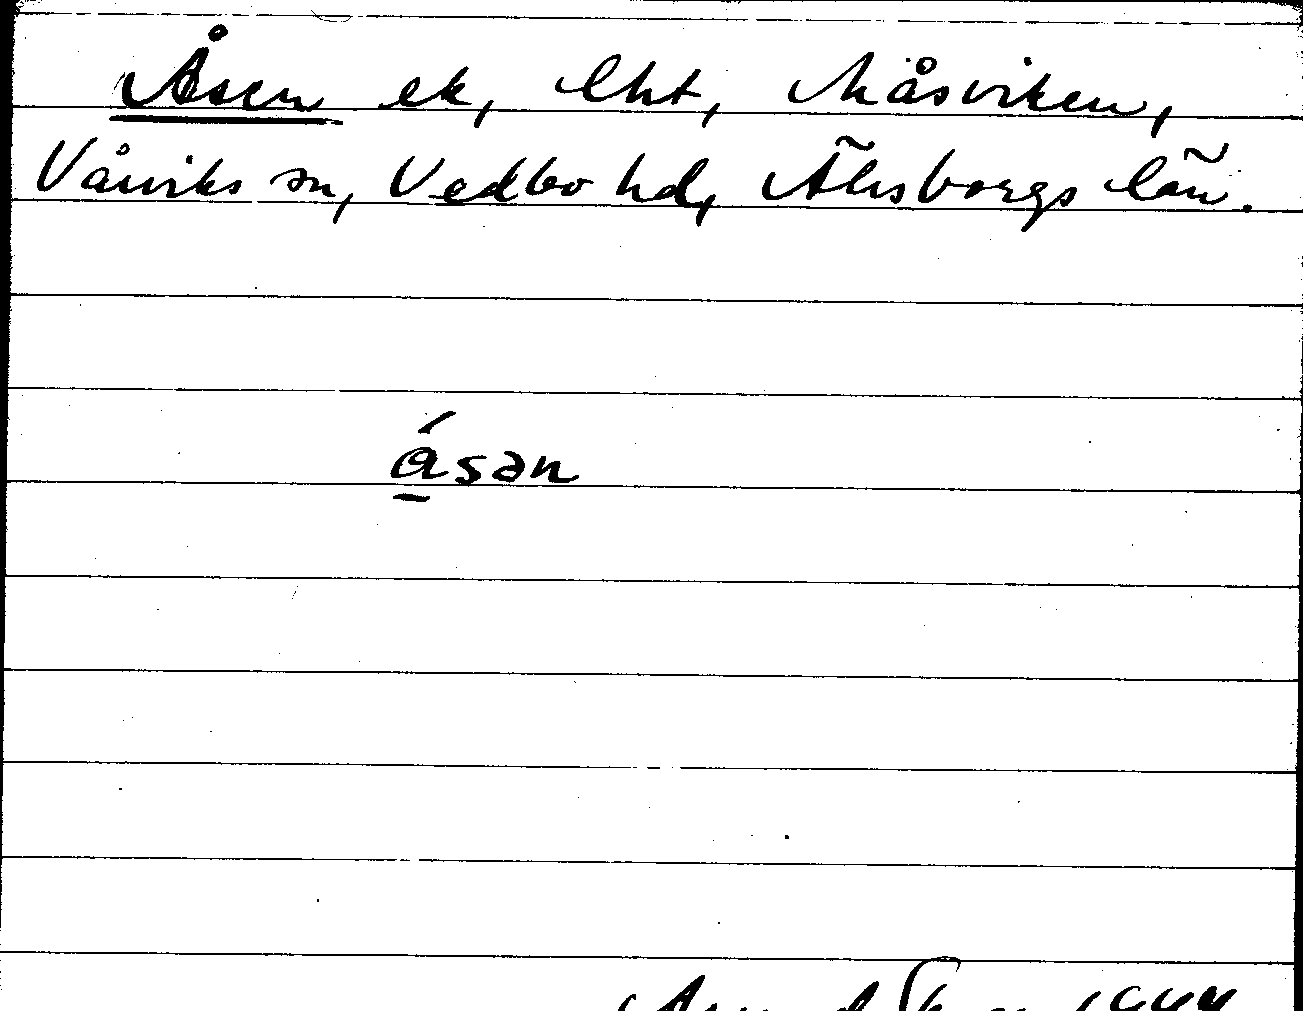 Åsen ek, lht, Måsviken,
Vårviks sn, Vedbo hd, Älvsborgs län.
åsən